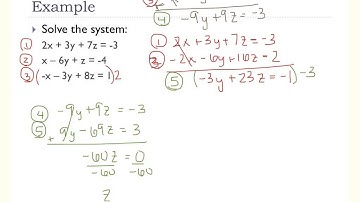 Example
④ -9y+9z=-3
▸ Solve the system:
① 2x + 3y + 7z = -3
② x – 6y + z = -4
③ (-x – 3y + 8z = 1)2
① 2x+3y+7z=-3
③ -2x-6y+16z=2
⑤ (-3y+23z=-1)-3
④ -9y+9z=-3
⑤ + 9y-69z=3
-60z=0
-60 -60
z